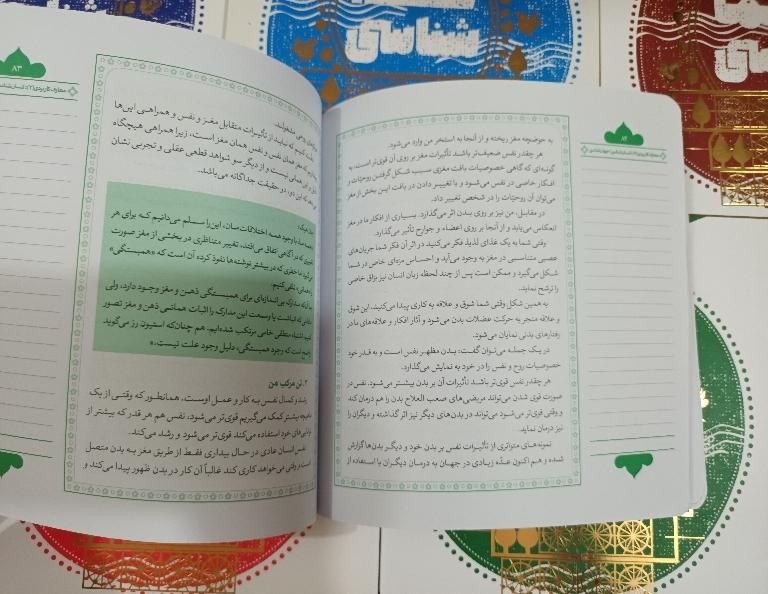 شناسی
۸۳
معارف کاربردی(۲): انسان‌شناسی
روحی بدمی‌خوانند.
کنیم که نباید از تأثیرات متقابل مغز و نفس و همراهی این‌ها
مغز همان نفس و نفس همان مغز است، زیرا همراهی هیچگاه
این همانی نیست و از دیگر سو شواهد قطعی عقلی و تجربی نشان
که این دو، دو حقیقت جداگانه می‌باشد.
با وجود همه اختلافات‌مان، این را مسلم می‌دانیم که برای هر
در آگاهی اتفاق می‌افتد، تغییر متناظری در بخشی از مغز صورت
خطری که در بیشتر نوشته‌ها نفوذ کرده آن است که «همبستگی»
تلقی کنیم.
برای همبستگی ذهن و مغز وجود دارد، ولی
وسعت این مدارک را اثبات همانی ذهن و مغز تصور
اشتباه منطقی خامی مرتکب شده‌ایم. هم چنان‌که استیون رز می‌گوید
واضح است که وجود همبستگی، دلیل وجود علت نیست.»
۲. تن مرکب من
رشد و کمال نفس به کار و عمل اوست، همانطور که وقتی از یک
ماهیچه بیشتر کمک می‌گیریم قوی‌تر می‌شود، نفس هم هر قدر که بیشتر از
توانایی‌های خود استفاده می‌کند قوی‌تر می‌شود و رشد می‌کند.
نفس انسان عادی در حال بیداری فقط از طریق مغز به بدن متصل
است و وقتی می‌خواهد کاری کند غالباً آن کار در بدن ظهور پیدا می‌کند و
۸۴
به حوضوچه مغز ریخته و از آنجا به استخر من وارد می‌شود.
هر چقدر نفس ضعیف‌تر باشد تأثیرات مغز بر روی آن قوی‌تر است، به
گونه‌ای که گاهی خصوصیات بافت مغزی سبب شکل گرفتن روحیّات و
افکار خاصی در نفس می‌شود و با تغییر دادن در بافت این بخش از مغز
می‌توان آن روحیّات را در شخص تغییر داد.
در مقابل، من نیز بر روی بدن اثر می‌گذارد. بسیاری از افکار ما در مغز
انعکاس می‌یابد و از آنجا بر روی اعضاء و جوارح تأثیر می‌گذارد.
وقتی شما به یک غذای لذیذ فکر می‌کنید در اثر آن فکر شما جریان‌های
عصبی متناسبی در مغز به وجود می‌آید و احساس مزه‌ای خاص در شما
شکل می‌گیرد و ممکن است پس از چند لحظه زبان انسان نیز بزاق خاصی
را ترشح نماید.
به همین شکل وقتی شما شوق و علاقه به کاری پیدا می‌کنید، این شوق
و علاقه منجر به حرکت عضلات بدن می‌شود و آثار افکار و علاقه‌های ما در
رفتارهای بدنی نمایان می‌شود.
در یک جمله می‌توان گفت: بدن مظهر نفس است و به قدر خود
خصوصیات روح و نفس را در خود به نمایش می‌گذارد.
هر چقدر نفس قوی‌تر باشد تأثیرات آن بر بدن بیشتر می‌شود. نفس در
صورت قوی شدن می‌تواند مریضی‌های صعب العلاج بدن را هم درمان کند
و وقتی قوی‌تر می‌شود می‌تواند در بدن‌های دیگر نیز اثر گذاشته و دیگران را
نیز درمان نماید.
نمونه‌های متواتری از تأثیرات نفس بر بدن خود و دیگر بدن‌ها گزارش
شده و هم اکنون عدّه زیادی در جهان به درمان دیگران با استفاده از